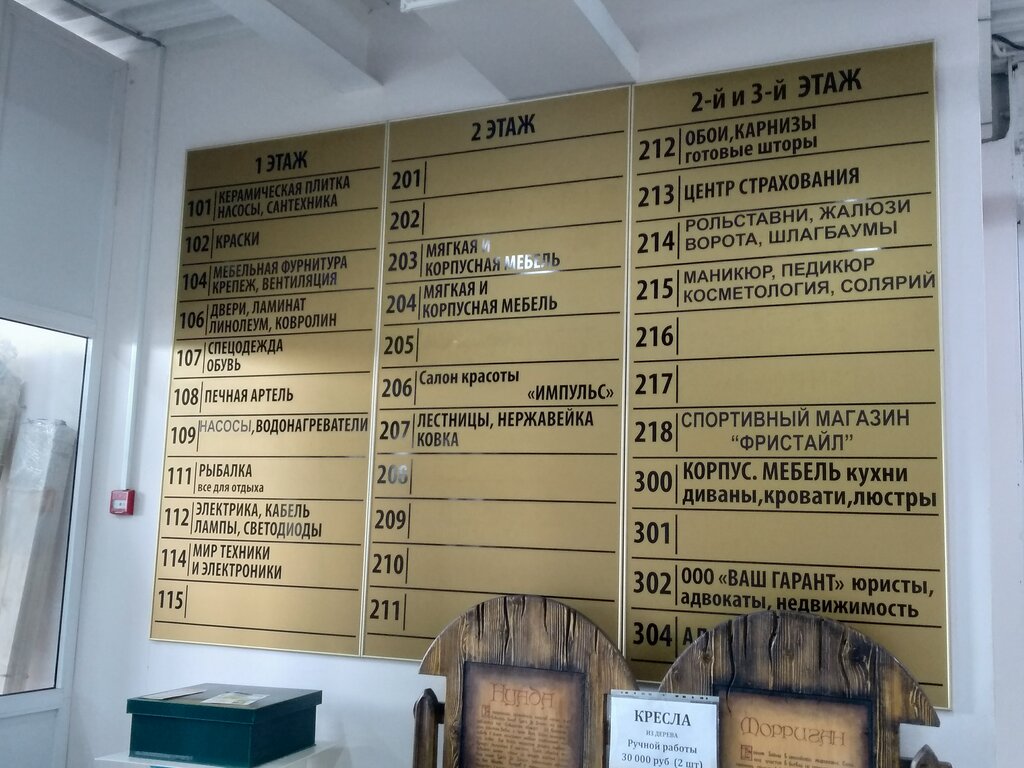 1 ЭТАЖ
101 КЕРАМИЧЕСКАЯ ПЛИТКА
НАСОСЫ, САНТЕХНИКА
102 КРАСКИ
104 МЕБЕЛЬНАЯ ФУРНИТУРА
КРЕПЕЖ, ВЕНТИЛЯЦИЯ
106 ДВЕРИ, ЛАМИНАТ
ЛИНОЛЕУМ, КОВРОЛИН
107 СПЕЦОДЕЖДА
ОБУВЬ
108 ПЕЧНАЯ АРТЕЛЬ
109 НАСОСЫ,ВОДОНАГРЕВАТЕЛИ
111 РЫБАЛКА
все для отдыха
112 ЭЛЕКТРИКА, КАБЕЛЬ
ЛАМПЫ, СВЕТОДИОДЫ
114 МИР ТЕХНИКИ
И ЭЛЕКТРОНИКИ
115
2 ЭТАЖ
201
202
203 МЯГКАЯ И
КОРПУСНАЯ МЕБЕЛЬ
204 МЯГКАЯ И
КОРПУСНАЯ МЕБЕЛЬ
205
206 Салон красоты
«ИМПУЛЬС»
207 ЛЕСТНИЦЫ, НЕРЖАВЕЙКА
КОВКА
208
209
210
211
2-й и 3-й ЭТАЖ
212 ОБОИ,КАРНИЗЫ
готовые шторы
213 ЦЕНТР СТРАХОВАНИЯ
214 РОЛЬСТАВНИ, ЖАЛЮЗИ
ВОРОТА, ШЛАГБАУМЫ
215 МАНИКЮР, ПЕДИКЮР
КОСМЕТОЛОГИЯ, СОЛЯРИЙ
216
217
218 СПОРТИВНЫЙ МАГАЗИН
“ФРИСТАЙЛ”
300 КОРПУС. МЕБЕЛЬ кухни
диваны,кровати,люстры
301
302 ООО «ВАШ ГАРАНТ» юристы,
адвокаты, недвижимость
304
КРЕСЛА
ИЗ ДЕРЕВА
Ручной работы
30 000 руб (2 шт)
МОРРИГАН